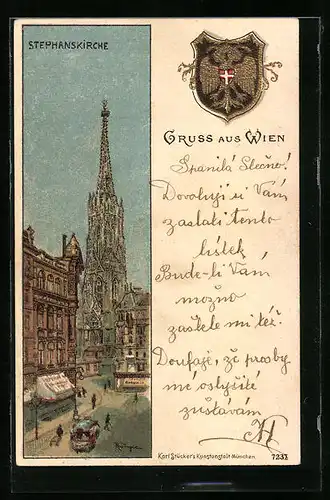 STEPHANSKIRCHE
GRUSS AUS WIEN
Spanilá Slečno!
Dovoluji si Vám
zaslati tento
lístek
Bude-li Vám
možno
zašlete mi též.
Doufaje, že prosby
mé oslyšíté
zůstávám
Karl Stücker's Kunstanstalt München
7237